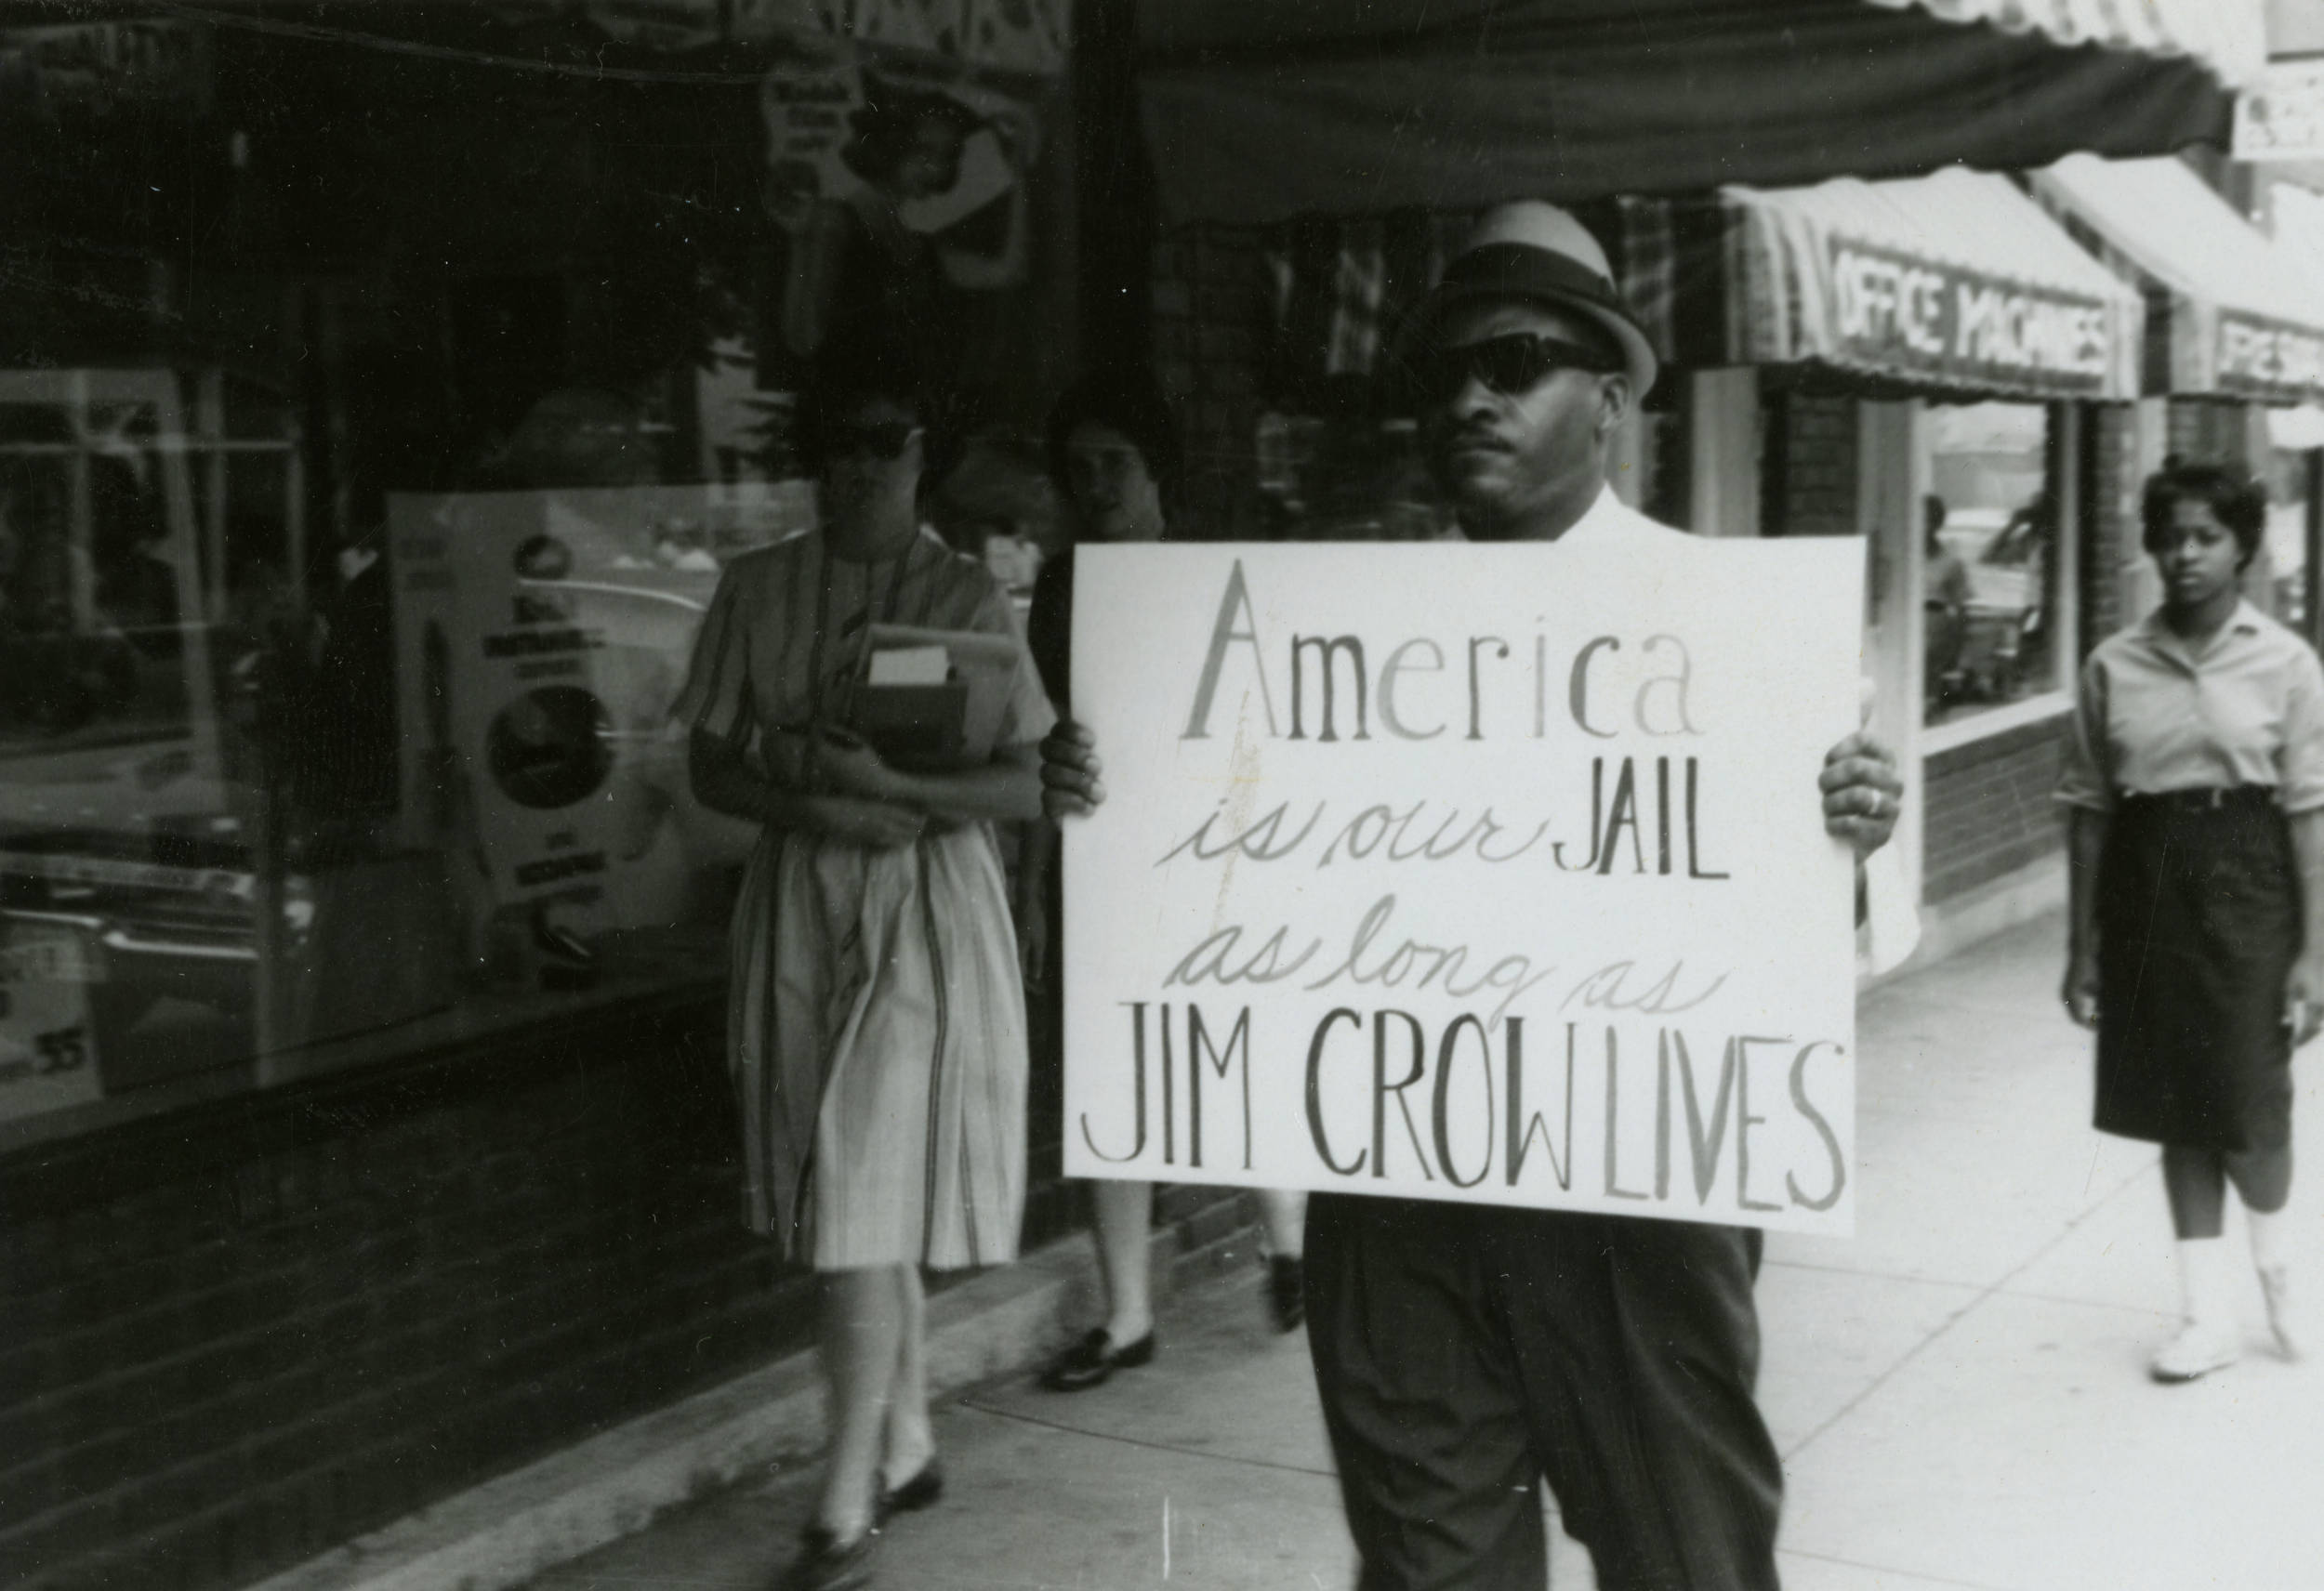 Kodak
film
OFFICE MACHINES
America
is our JAIL
as long as
JIM CROW LIVES
55